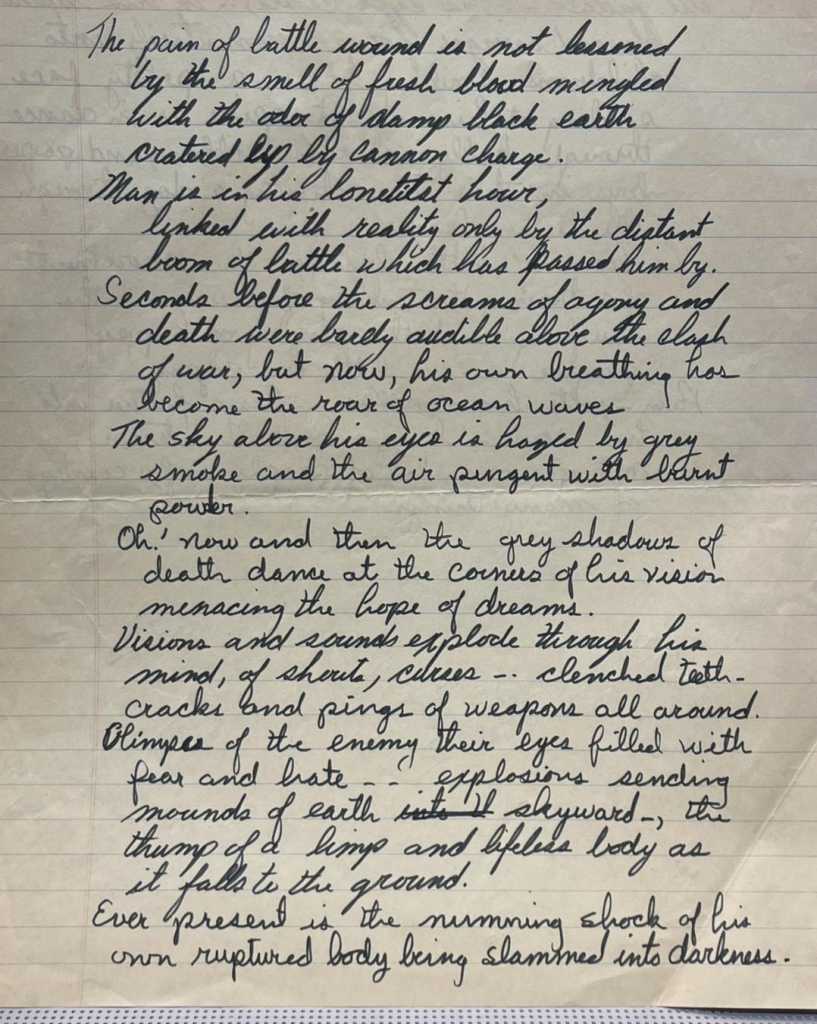 The pain of battle wound is not lessoned
by the smell of fresh blood mingled
with the odor of damp black earth
cratered up by cannon charge.
Man is in his lonelitst hour,
linked with reality only by the distant
boom of battle which has passed him by.
Seconds before the screams of agony and
death were barely audible above the clash
of war, but now, his own breathing has
become the roar of ocean waves
The sky above his eyes is hazed by grey
smoke and the air pungent with burnt
powder.
Oh! now and then the grey shadows of
death dance at the corners of his vision
menacing the hope of dreams.
Visions and sounds explode through his
mind, of shouts, curses -- clenched teeth-
cracks and pings of weapons all around.
Glimpses of the enemy their eyes filled with
fear and hate -- explosions sending
mounds of earth skyward-, the
thump of a limp and lifeless body as
it falls to the ground.
Ever present is the numning shock of his
own ruptured body being slammed into darkness.